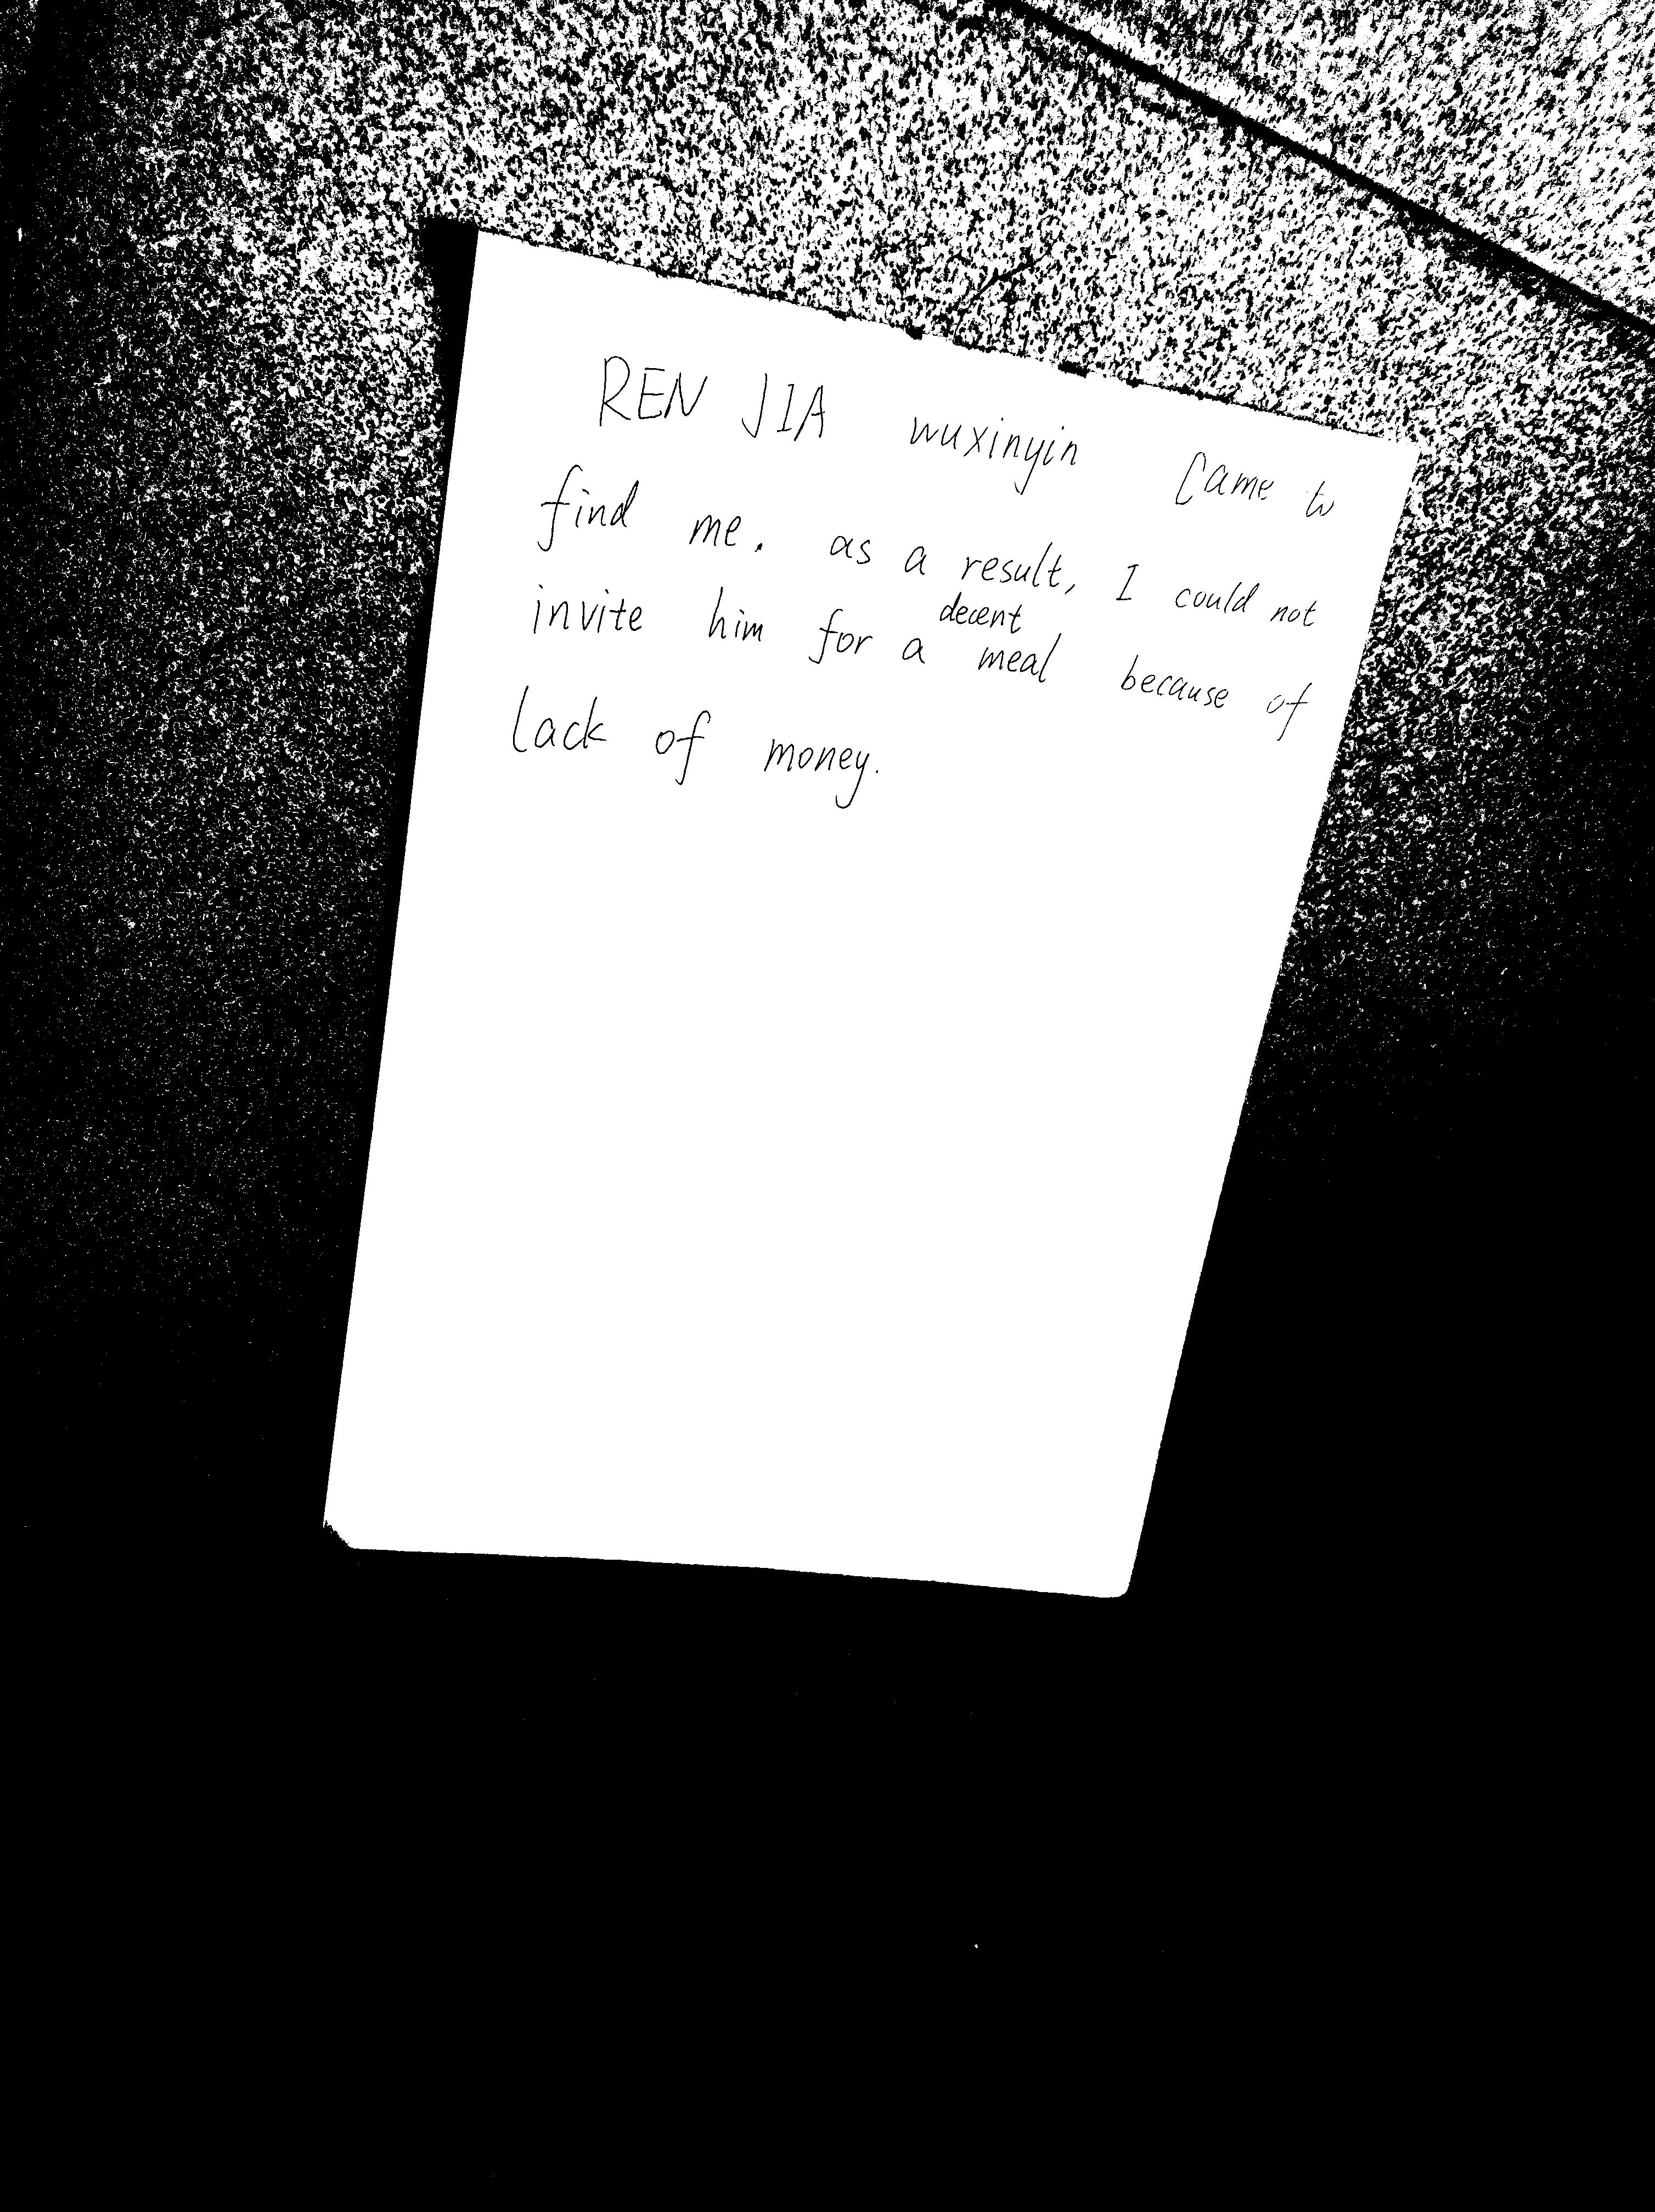 REN JIA wuxinyin Came to
find me. as a result, I could not
invite him for a decent meal because of
lack of money.